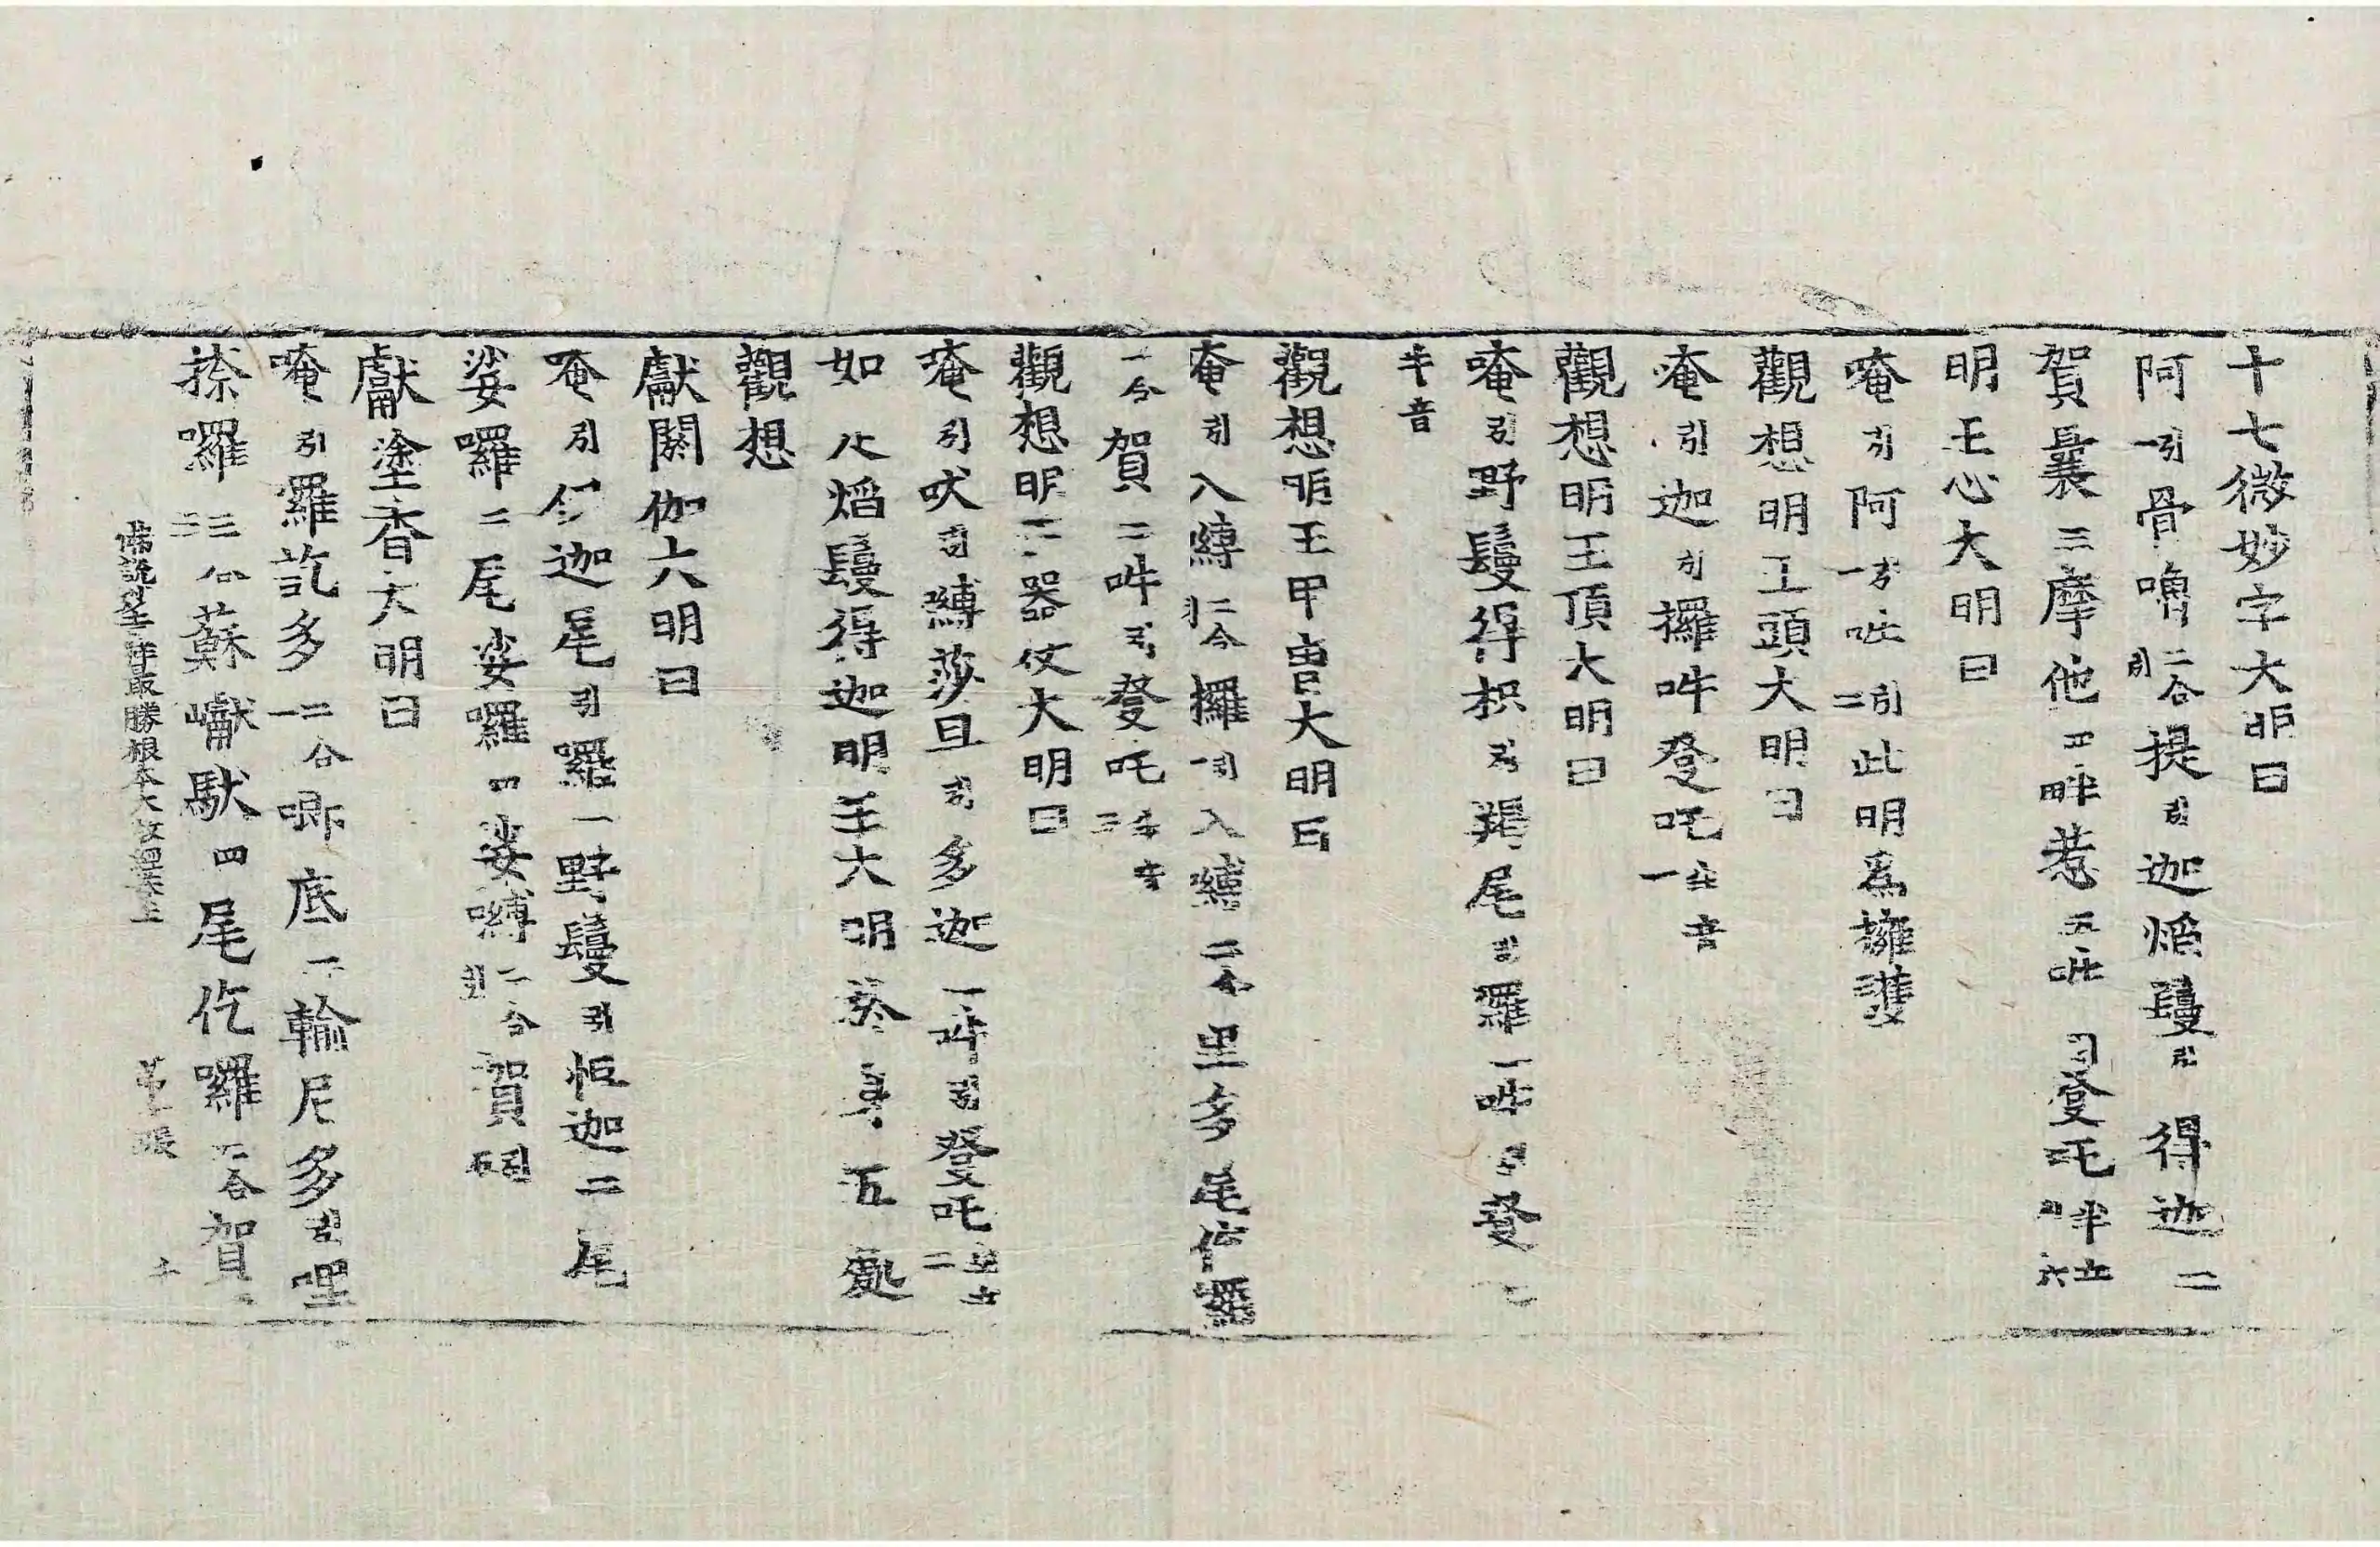 十七微妙字大明曰
阿引一骨嚕二合引提引迦焰鬘引得迦二
賀曩三摩他四吽惹五吽引登吒半音六
明王心大明曰
唵引阿引一吽引二此明爲擁護
觀想明王頭大明曰
唵引迦引攞吽登吒半音一
觀想明王頂大明曰
唵引野鬘得枳引羯尾引羅一吽引登
半音
觀想明王甲冑大明曰
唵引入嚩二合引攞引一入嚩二合里多尾儞羅
一合賀二吽引登吒半音三
觀想明王器仗大明曰
唵引吠引嚩莎旦引多迦一吽引登吒半音二
如火焰鬘得迦明王大明於身五處
觀想
獻閼伽大明曰
唵引儞迦尾引羅一野鬘引怛迦二尾
娑囉二尾娑囉四娑嚩二合引賀引五
獻塗香大明曰
唵引羅訖多二合一唧底二輪尼多引哩
捺囉二合三蘇巘馱四尾仡囉二合賀
佛說 最勝根本大教 經 上 第 張